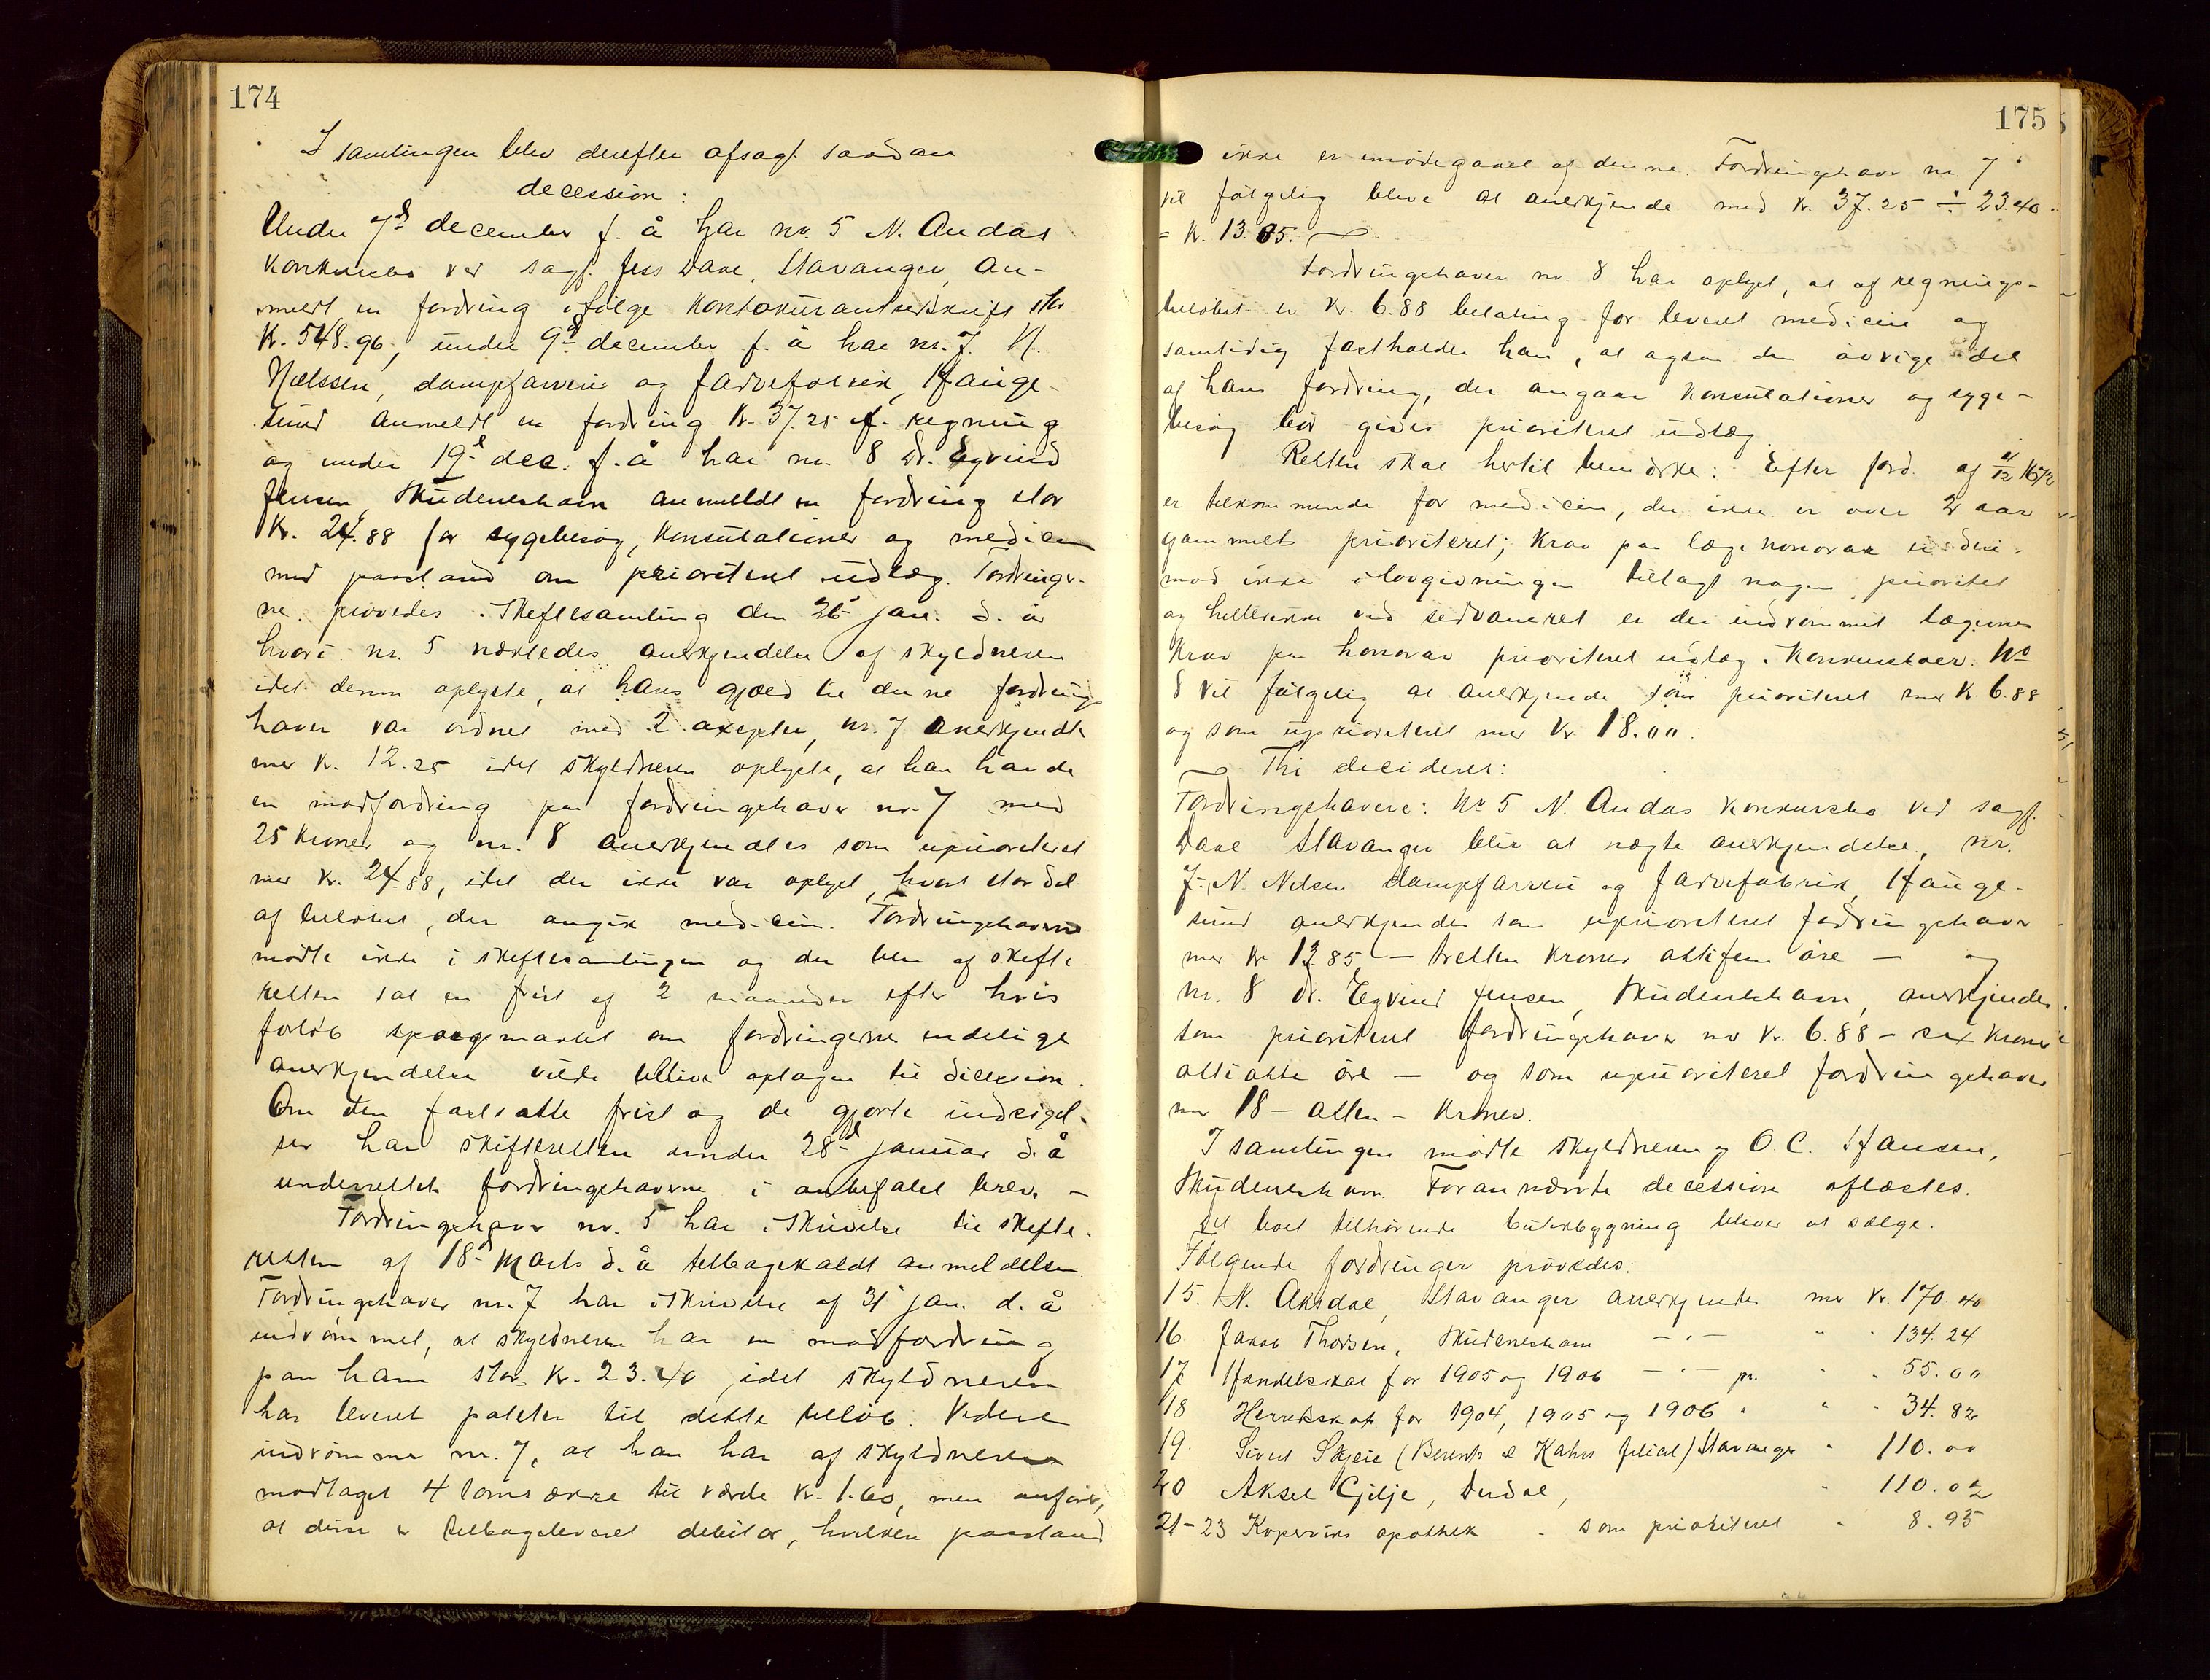 174
I samlingen blev derefter afsagt saadan
decession:
Under 7de december f. å har nr. 5 N. Andas
konkursbo ved sagf. Jess Dave, Stavanger, an-
meldt en fordring ifølge kontokurantudskrift stor
kr. 548.96, under 9de december f. å har nr. 7. N.
Nielssen, dampfarveri og farvefabrik, Hauge-
sund anmeldt en fordring kr. 37.25 ef. regning
og under 19de dec. f. å har nr. 8 Dr. Eyvind
Jensen, Skudeneshavn anmeldt en fordring stor
kr. 24.88 for sygebesøg, konsultationer og medicin
med paastand om prioriteret udlæg. Fordringer-
ne prøvedes i skiftesamling den 26de jan. d. å
hvori nr. 5 nægtedes anerkjendelse af skyldneren
idet denne oplyste, at hans gjæld til denne fordrings
haver var ordnet med 2 axepter, nr. 7 anerkjendte
mer kr. 12.25 idet skyldneren oplyste, at han havde
en modfordring paa fordringshaver nr. 7 med
25 kroner og nr. 8 anerkjendtes som uprioriteret
mer kr. 24.88, idet der ikke var oplyst, hvort stor del
af beløbet, der angik medicin. Fordringshaverne
mødte ikke i skiftesamlingen og der blev af skifte
retten sat en frist af 2 maaneder efter hvis
forløb spørgsmaalet om fordringerne endelige
anerkjendelse vilde blive optagen til decession.
Om den fastsatte frist og de gjorte indsigel-
ser har skifteretten under 28de januar d. å
underrettet fordringshaverne i anbefalet brev. –
Fordringshaver nr. 5 har i skrivelse til skifte-
retten af 18de marts d. å tilbagekaldt anmeldelsen.
Fordringshaver nr. 7 har i skrivelse af 31 jan. d. å
indrømmet, at skyldneren har en modfordring
paa ham stor kr. 23.40, idet skyldneren
har leveret paller til dette beløb. Videre
indrømmer nr. 7, at han har af skyldneren
modtaget 4 tomsække til værdi kr. 1.60, men anfører,
at disse er tilbageleveret debitor, hvilken paastand
175
ikke er imødegaaet af denne. Fordringshaver nr. 7
vil følgelig blive at anerkjende med kr. 37.25 ÷ 23.40
= kr. 13.85.
Fordringshaver nr. 8 har oplyst, at af regnings-
beløbet er kr. 6.88 betaling for leveret medicin og
samtidig fastholder han, at ogsaa den øvrige del
af hans fordring, der angaar konsultationer og syge-
besøg bør gives prioriteret udlæg.
Retten skal hertil bemærke: Efter ford. af
er tilkommende for medicin, der ikke er over 2 aar
gammelt prioriteret; krav paa lægehonorar er der-
mod ikke i lovgivningen tillagt nogen prioritet
og hellerikke ved sedvaneret er der indrømmet lægernes
krav paa honorar prioriteret udlæg i konkursboer. No
8 vil følgelig at anerkjende som prioriteret mer kr. 6.88
og som uprioriteret mer kr. 18.00.
Thi decideres:
Fordringshavere: Nr 5 N. Andas konkursbo ved sagf.
Dave Stavanger blir at nægte anerkjendelse, nr.
7. N. Nilsen dampfarveri og farvefabrik, Hauge-
sund anerkjendes som uprioriteret fordringshaver
mer kr 13.85 – tretten kroner ottifem øre – og
nr. 8 dr. Eyvind Jensen, Skudeneshavn, anerkjendes
som prioriteret fordringshaver mer kr. 6.88 – sex kroner
ottiotte øre – og som uprioriteret fordringshaver
mer 18 – atten – kroner.
I samlingen mødte skyldneren og O. C. Hansen,
Skudeneshavn. Forannævnte decession oplæstes.
Det boet tilhørende butikbygning bliver at sælge.
Følgende fordringer prøvedes:
15. N. Aksdal, Stavanger anerkjendes mer kr. 170.40
16 Jakob Thorsen, Skudeneshavn – " – " " 134.24
17 Handelsskat for 1905 og 1906 – " – pr. " " 55.00
18 Herredsskat for 1904, 1905 og 1906 " " " 34.82
19. Sivert Skjeie (Berents & Kahrs filial) Stavanger " 110.00
20 Aksel Gjilje, " 110.02
21-23 Kopervik apothek " som prioriteret " 8.95